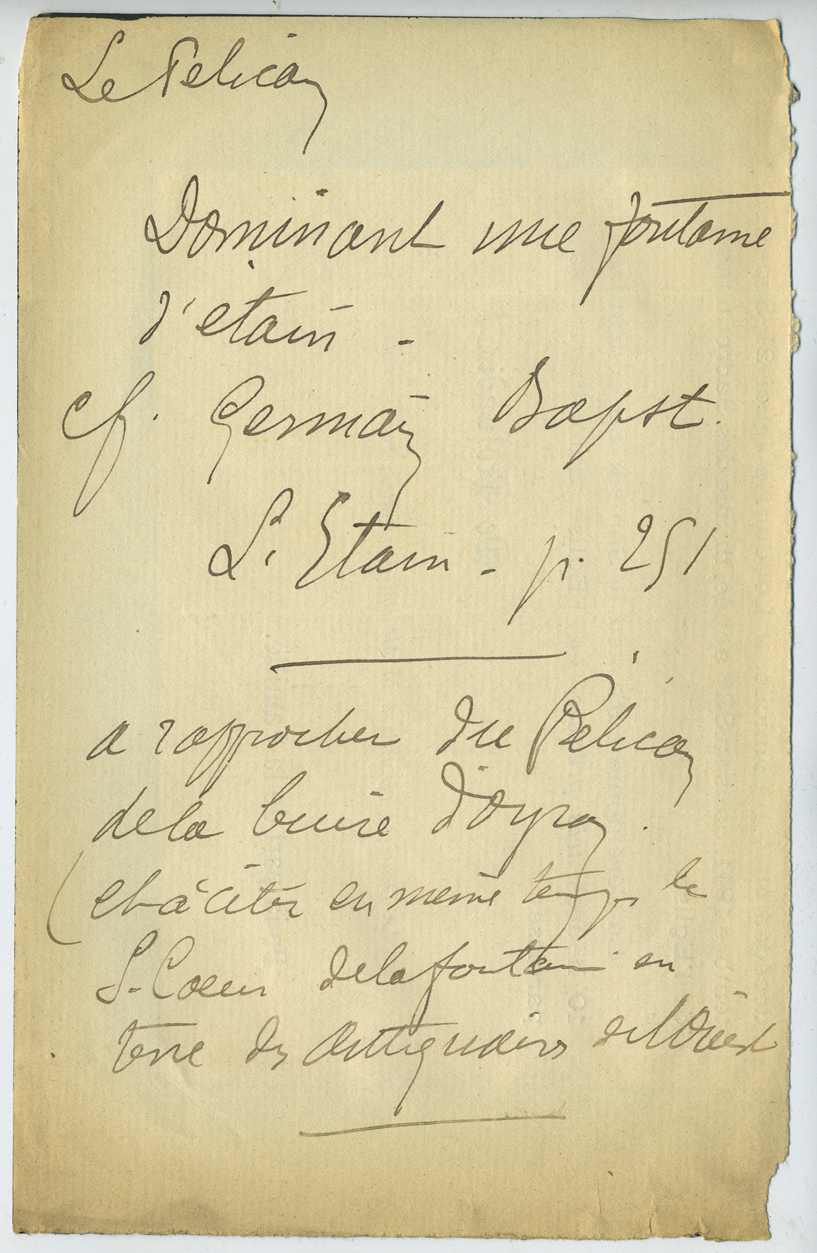 Le Pelican
Dominant une fontaine
d'etain -
cf. Germain Bapst.
L'Etain - p. 251
a rapprocher du Pelican
de la buire d'Oyron.
(et à citer en meme temps le
S. Coeur de la fontaine en
terre des Antiquaires de l'Ouest